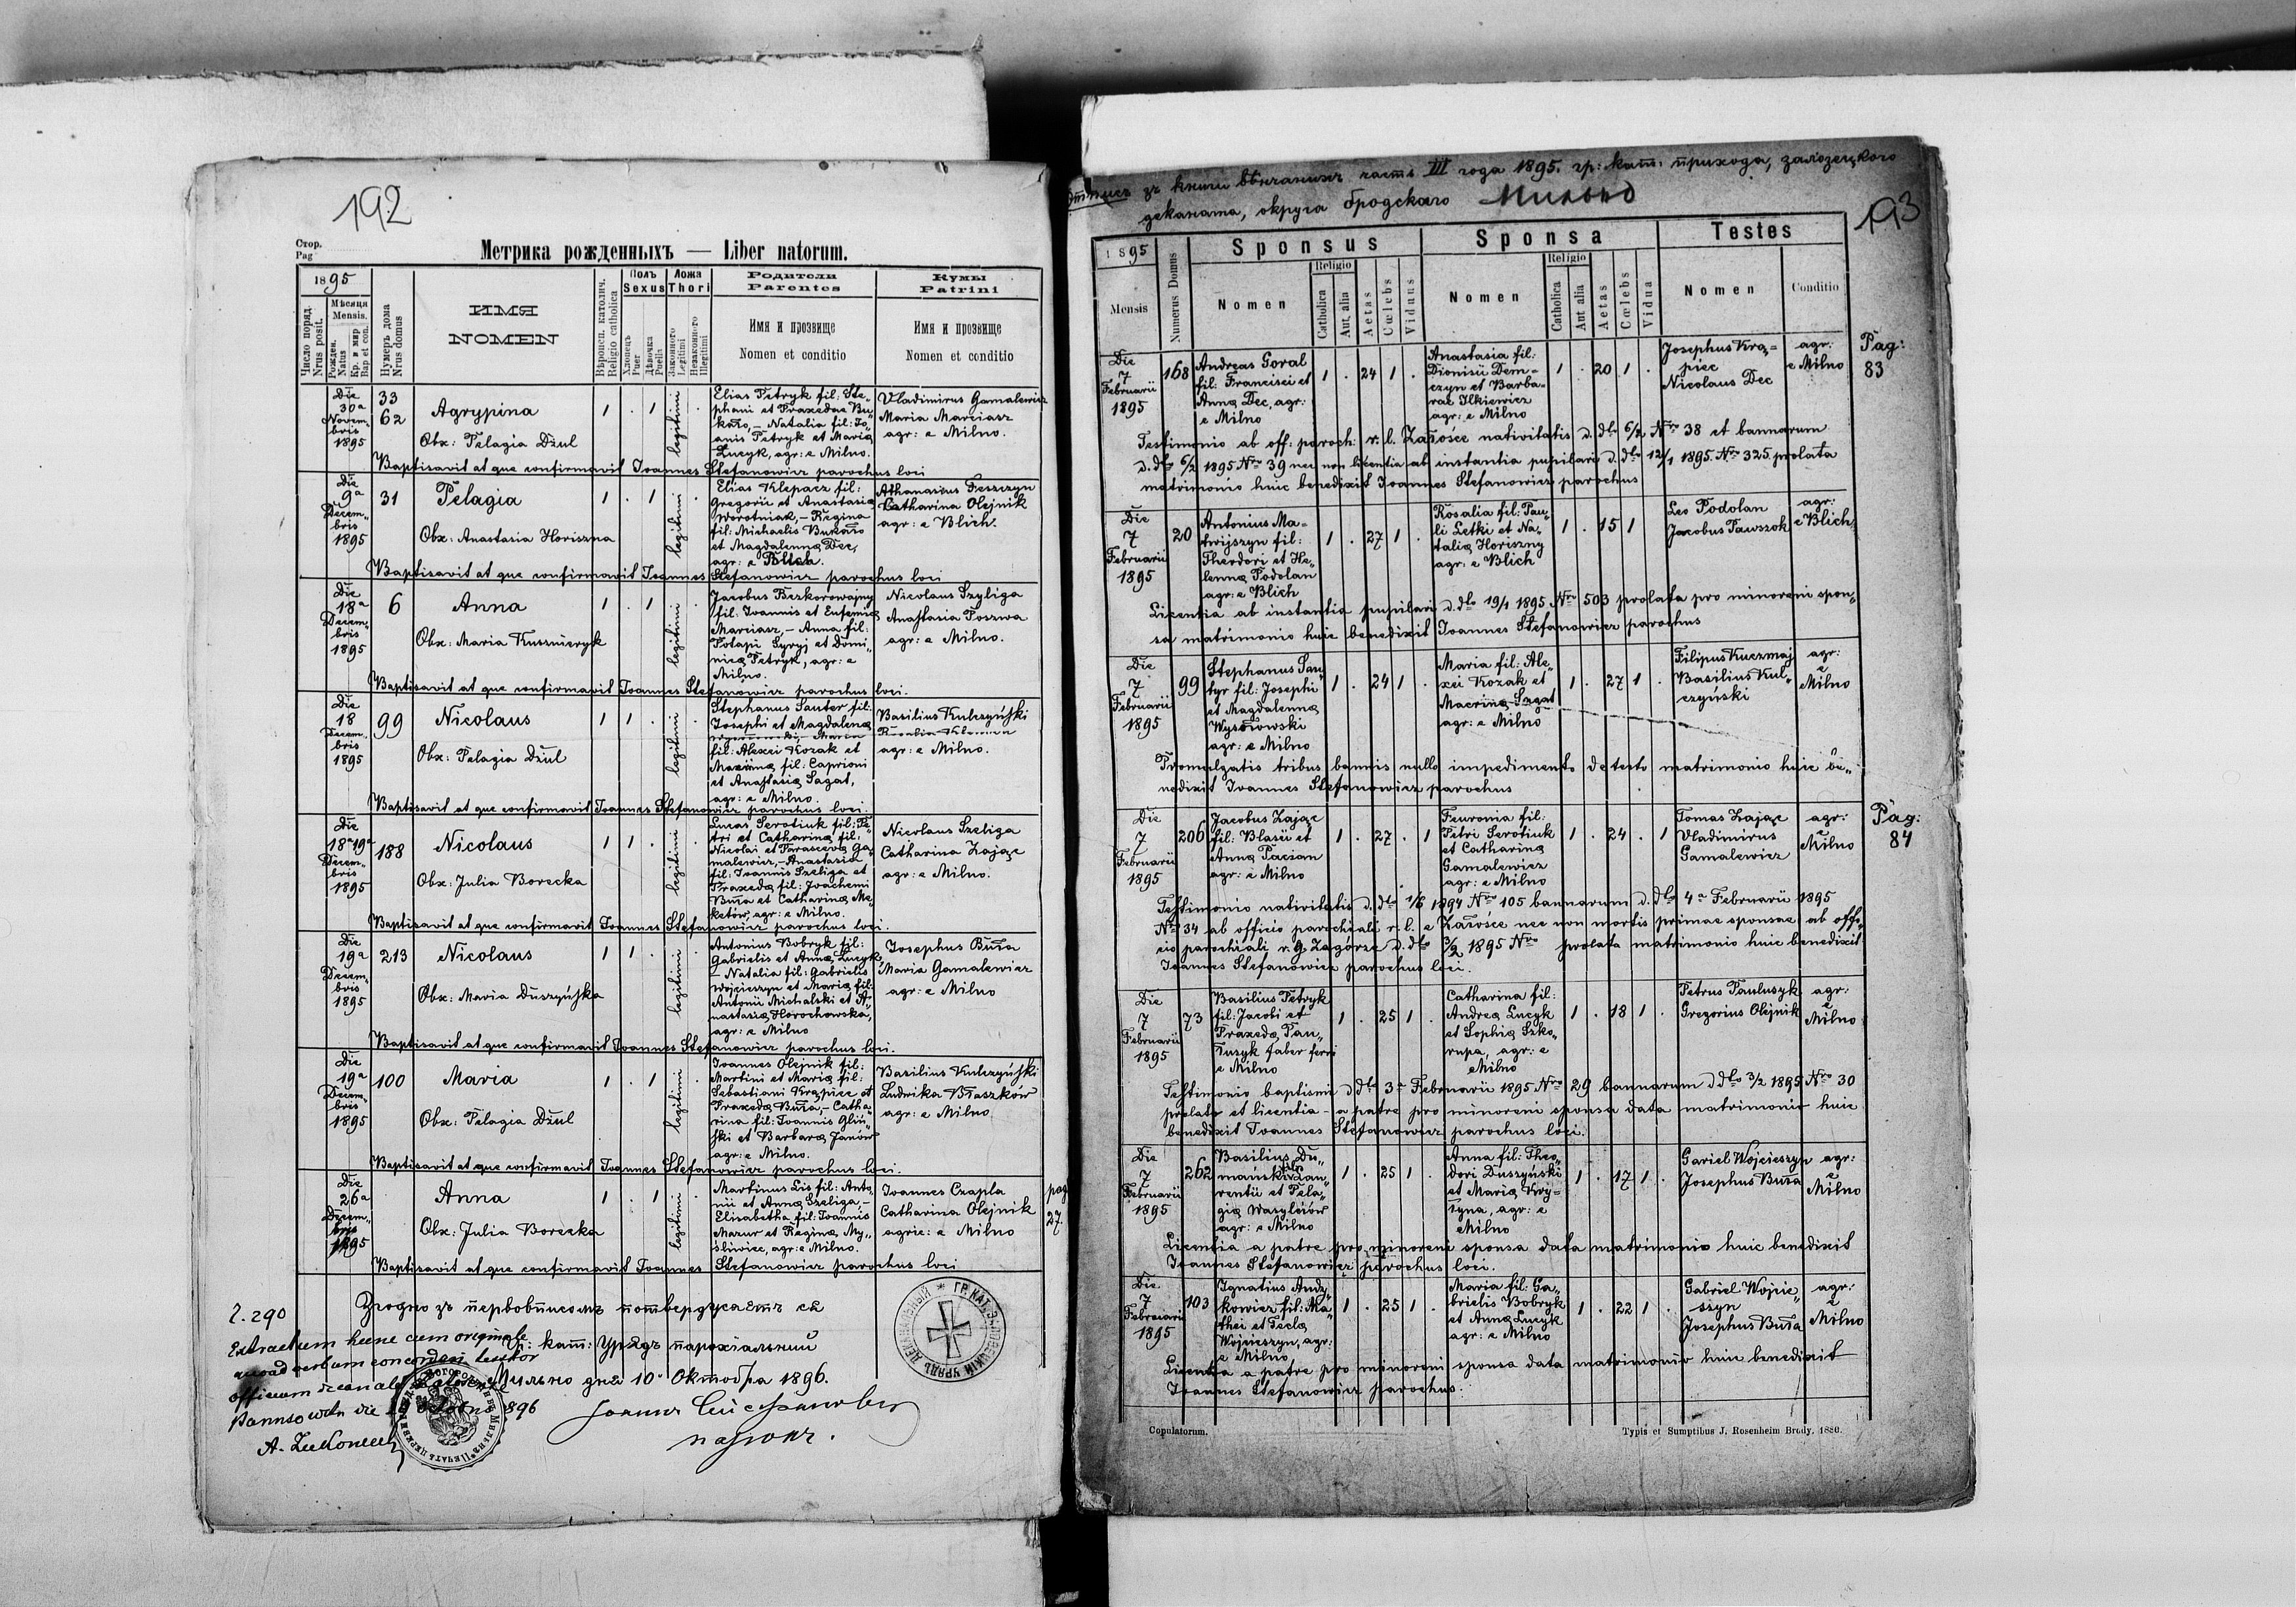 192
Стор.
Pag
Метрика рожденныхъ — Liber natorum.
1895
Число поряд.
Nrus posit.
Мѣсяця
Mensis.
Рожден.
Natus
Кр. и мир
Bap et con.
Нумеръ дома
Nrus domus
ИМЯ
NOMEN
Вѣроисп. католич.
Religio catholica
Полъ
Sexus
Хлопецъ
Puer
Дѣвочка
Puella
Ложа
Thori
Законного
Legitimi
Незаконного
Illegitimi
Родители
Parentes
Имя и прозвище
Nomen et conditio
Кумы
Patrini
Имя и прозвище
Nomen et conditio
Die
30ª
Novem„
bris
1895
33
62
Agrypina
Obx: Pelagia Dżul
1 . 1 .
legitimi
Elias Petryk fil: Ste„
phani et Praxedae Bu„
kało, – Natalia fil: Jo„
anis Petryk et Maria
Łucyk, agr: e Milno.
Vladimirus Gamalewicz
Maria Marciasz
agr: e Milno.
Baptisavit at que confirmavit Joannes Stefanowicz parochus loci
Die
9ª
Decem„
bris
1895
31
Pelagia
Obx: Anastasia Horiszna
1 . 1 .
legitimi
Elias Klepacz fil:
Gregorii et Anastasia
Worotniak, – Regina
fil: Michaelis Bukało
et Magdalenna Dec,
agr: e Blich.
Athanasius Feszczyn
Catharina Olejnik
agr: e Blich.
Baptisavit at que confirmavit Joannes Stefanowicz parochus loci
Die
18ª
Decem„
bris
1895
6
Anna
Obx: Maria Kusznieryk
1 . 1 .
legitimi
Jacobus Bezkorowajny
fil: Joannis et Eufemia
Marciasz, – Anna fil:
Potapi Syryj et Domi„
nica Petryk, agr: e
Milno.
Nicolaus Szyliga
Anastasia Poszwa
agr: e Milno.
Baptisavit at que confirmavit Joannes Stefanowicz parochus loci.
Die
18
Decem„
bris
1895
99
Nicolaus
Obx: Pelagia Dżul
1 1 . .
legitimi
Stephanus Sauter fil:
Josephi et Magdalena
fil: Alexei Kozak et
Macrina fil: Caprioni
et Anastasia Sagat,
agr: e Milno.
Basilius Kulczyński
agr: e Milno.
Baptisavit at que confirmavit Joannes Stefanowicz parochus loci.
Die
18ª19ª
Decem„
bris
1895
188
Nicolaus
Obx: Julia Borecka
1 1 .
legitimi
Lucas Serotiuk fil: Pe„
tri et Catharina fil:
Nicolai et Parasceva Ga„
malewicz, – Anastasia
fil: Joannis Szeliga et
Praxeda fil: Joachemi
Buła et Catharina Me„
ketów, agr: e Milno.
Nicolaus Szeliga
Catharina Zając
agr: e Milno.
Baptisavit at que confirmavit Joannes Stefanowicz parochus loci.
Die
19ª
Decem„
bris
1895
213
Nicolaus
Obx: Maria Duszyńska
1 1 .
legitimi
Antonius Bobryk fil:
Gabrielis et Anna Łucyk,
– Natalia fil: Gabrielis
Wojcieszyn et Maria fil:
Antonii Michalski et A„
nastasia Horochowska,
agr: e Milno
Josephus Buła
Maria Gamalewicz
agr: e Milno
Baptisavit at que confirmavit Joannes Stefanowicz parochus loci.
Die
19ª
Decem„
bris
1895
100
Maria
Obx: Pelagia Dżul
1 . 1 .
legitimi
Joannes Olejnik fil:
Martini et Maria fil:
Sebastiani Krąpiec et
Praxeda Buła, – Catha„
rina fil: Joannis Gliń„
ski et Barbara Janów
agr: e Milno.
Basilius Kulczyński
Ludvika Błaszków
agr: e Milno
Baptisavit at que confirmavit Joannes Stefanowicz parochus loci.
Die
26ª
Decem„
bris
1895
Anna
Obx: Julia Borecka
1 . 1 .
legitimi
Martinus Lis fil: Anto„
nii et Anna Szeliga, –
Elisabetha fil: Joannis
Mazur et Regina My„
śliwiec, agr: e Milno.
Joannes Czapla
Catharina Olejnik
agric: e Milno
pag
27.
Baptisavit at que confirmavit Joannes Stefanowicz parochus loci
2. 290
Згодно зъ первописомъ потверджаєтъ ся
Extractum hunc cum originale
Гр: кат: Урядъ парохіальный
quoad verbum concordari testor
officium decanale
Мильно дня 10 Октобра 1896.
die 1896
парохъ.
ГР. КАТ. УРЯДЪ ДЕКАНАЛЬНЫЙ
Отпись зъ книги вѣнчанихъ часть III года 1895. гр: кат: прихода, залозецкого
деканата, округа бродского Мильно
193
1895
Mensis
Numerus Domus
Sponsus
Nomen
Religio
Catholica
Aut. alia
Aetas
Cœlebs
Viduus
Sponsa
Nomen
Religio
Catholica
Aut alia
Aetas
Cœlebs
Vidua
Testes
Nomen
Conditio
Pag:
83
Die
7
Februarii
1895
168
Andreas Goral
fil: Francisci et
Anna Dec, agr:
e Milno
1 . 24 1 .
Anastasia fil:
Dionisii Dem„
czyn et Barba„
rae Ilkiewicz
agr: e Milno
1 . 20 1 .
Josephus Krą„
piec
Nicolaus Dec
agr:
e Milno
Testimonio ab off: paroch: r. l. Załośce nativitatis d. dto 6/2 Nro 38 et bannorum
d. dto 6/2 1895 Nro 39 nec non licentia ab instantia pupilari d. dto 12/1 1895. Nro 325. prolata
matrimonio huic benedixit Joannes Stefanowicz parochus
Die
7
Februarii
1895
20
Antonius Ma„
twijszyn fil:
Theodori et He„
lenna Podolan
agr: e Blich
1 . 27 1 .
Rosalia fil: Pau„
li Letki et Na„
talia Horiszny
agr: e Blich
1 . 15 1
Leo Podolan
Jacobus Pawszok
agr:
e Blich
Licentia ab instantia pupilari d. dto 19/1 1895 Nro 503 prolata pro minoreni spon„
sa matrimonio huic benedixit Joannes Stefanowicz parochus
Die
7
Februarii
1895
99
Stephanus Sau„
tyr fil: Josephi
et Magdalenna
Wysocowski
agr: e Milno
1 . 24 1 .
Maria fil: Ale„
xei Kozak et
Macrina Sagat
agr: e Milno
1 . 27 1 .
Filipus Kuczmaj
Basilius Kul„
czyński
agr:
e
Milno
Promulgatis tribus bannis nullo impedimento detecto matrimonio huic be„
nedixit Joannes Stefanowicz parochus
Pag:
84
Die
7
Februarii
1895
206
Jacobus Zając
fil: Blasii et
Anna Paczan
agr: e Milno
1 . 27 . 1
Feuronia fil:
Petri Serotiuk
et Catharina
Gamalewicz
agr: e Milno
1 . 24 . 1
Tomas Zając
Vladimirus
Gamalewicz
agr:
e
Milno
Testimonio nativitatis d. dto 1/6 1894 Nro 105 bannorum d. dto 4ª Februarii 1895
Nro 34 ab officio parochiali r. l. e Załośce nec non mortis primae sponsae ab offi„
cio parochiali r. g. Zagórze d. dto 3/2 1895 Nro prolata matrimonio huic benedixit
Joannes Stefanowicz parochus loci.
Die
7
Februarii
1895
73
Basilius Petryk
fil: Jacobi et
Praxeda Pau„
łusyk faber ferri
e Milno
1 . 25 1 .
Catharina fil:
Andrea Łucyk
et Sophia Szko„
rupa, agr: e
Milno
1 . 18 1 .
Petrus Paulusyk
Gregorius Olejnik
agr:
e
Milno
Testimonio baptismi d. dto 3ª Februarii 1895 Nro 29 bannorum d dto 3/2 1895 Nro 30
prolato et licentia – a patre pro minoreni sponsa data matrimonio huic
benedixit Joannes Stefanowicz parochus loci.
Die
7
Februarii
1895
262
Basilius Du„
mański Lau„
rentii et Pela„
gia Wasylciów
agr: e Milno
1 . 25 1 .
Anna fil: Theo„
dori Duszyński
et Maria Kry„
tyna, agr: e
Milno
1 . 17 1 .
Gariel Wojcieszyn
Josephus Buła
agr:
e
Milno
Licentia a patre pro minoreni sponsa data matrimonio huic benedixit
Joannes Stefanowicz parochus loci.
Die
7
Februarii
1895
103
Ignatius Andy„
kowicz fil: Ma„
thei et Tecla
Wojcieszyn, agr:
e Milno
1 . 25 1 .
Maria fil: Ga„
brielis Bobryk
et Anna Łucyk
agr: e Milno
1 . 22 1 .
Gabriel Wojcie„
szyn
Josephus Buła
agr:
e
Milno
Licentia a patre pro minoreni sponsa data matrimonio huic benedixit
Joannes Stefanowicz parochus.
Copulatorum.
Typis et Sumptibus J. Rosenheim Brody, 1880.